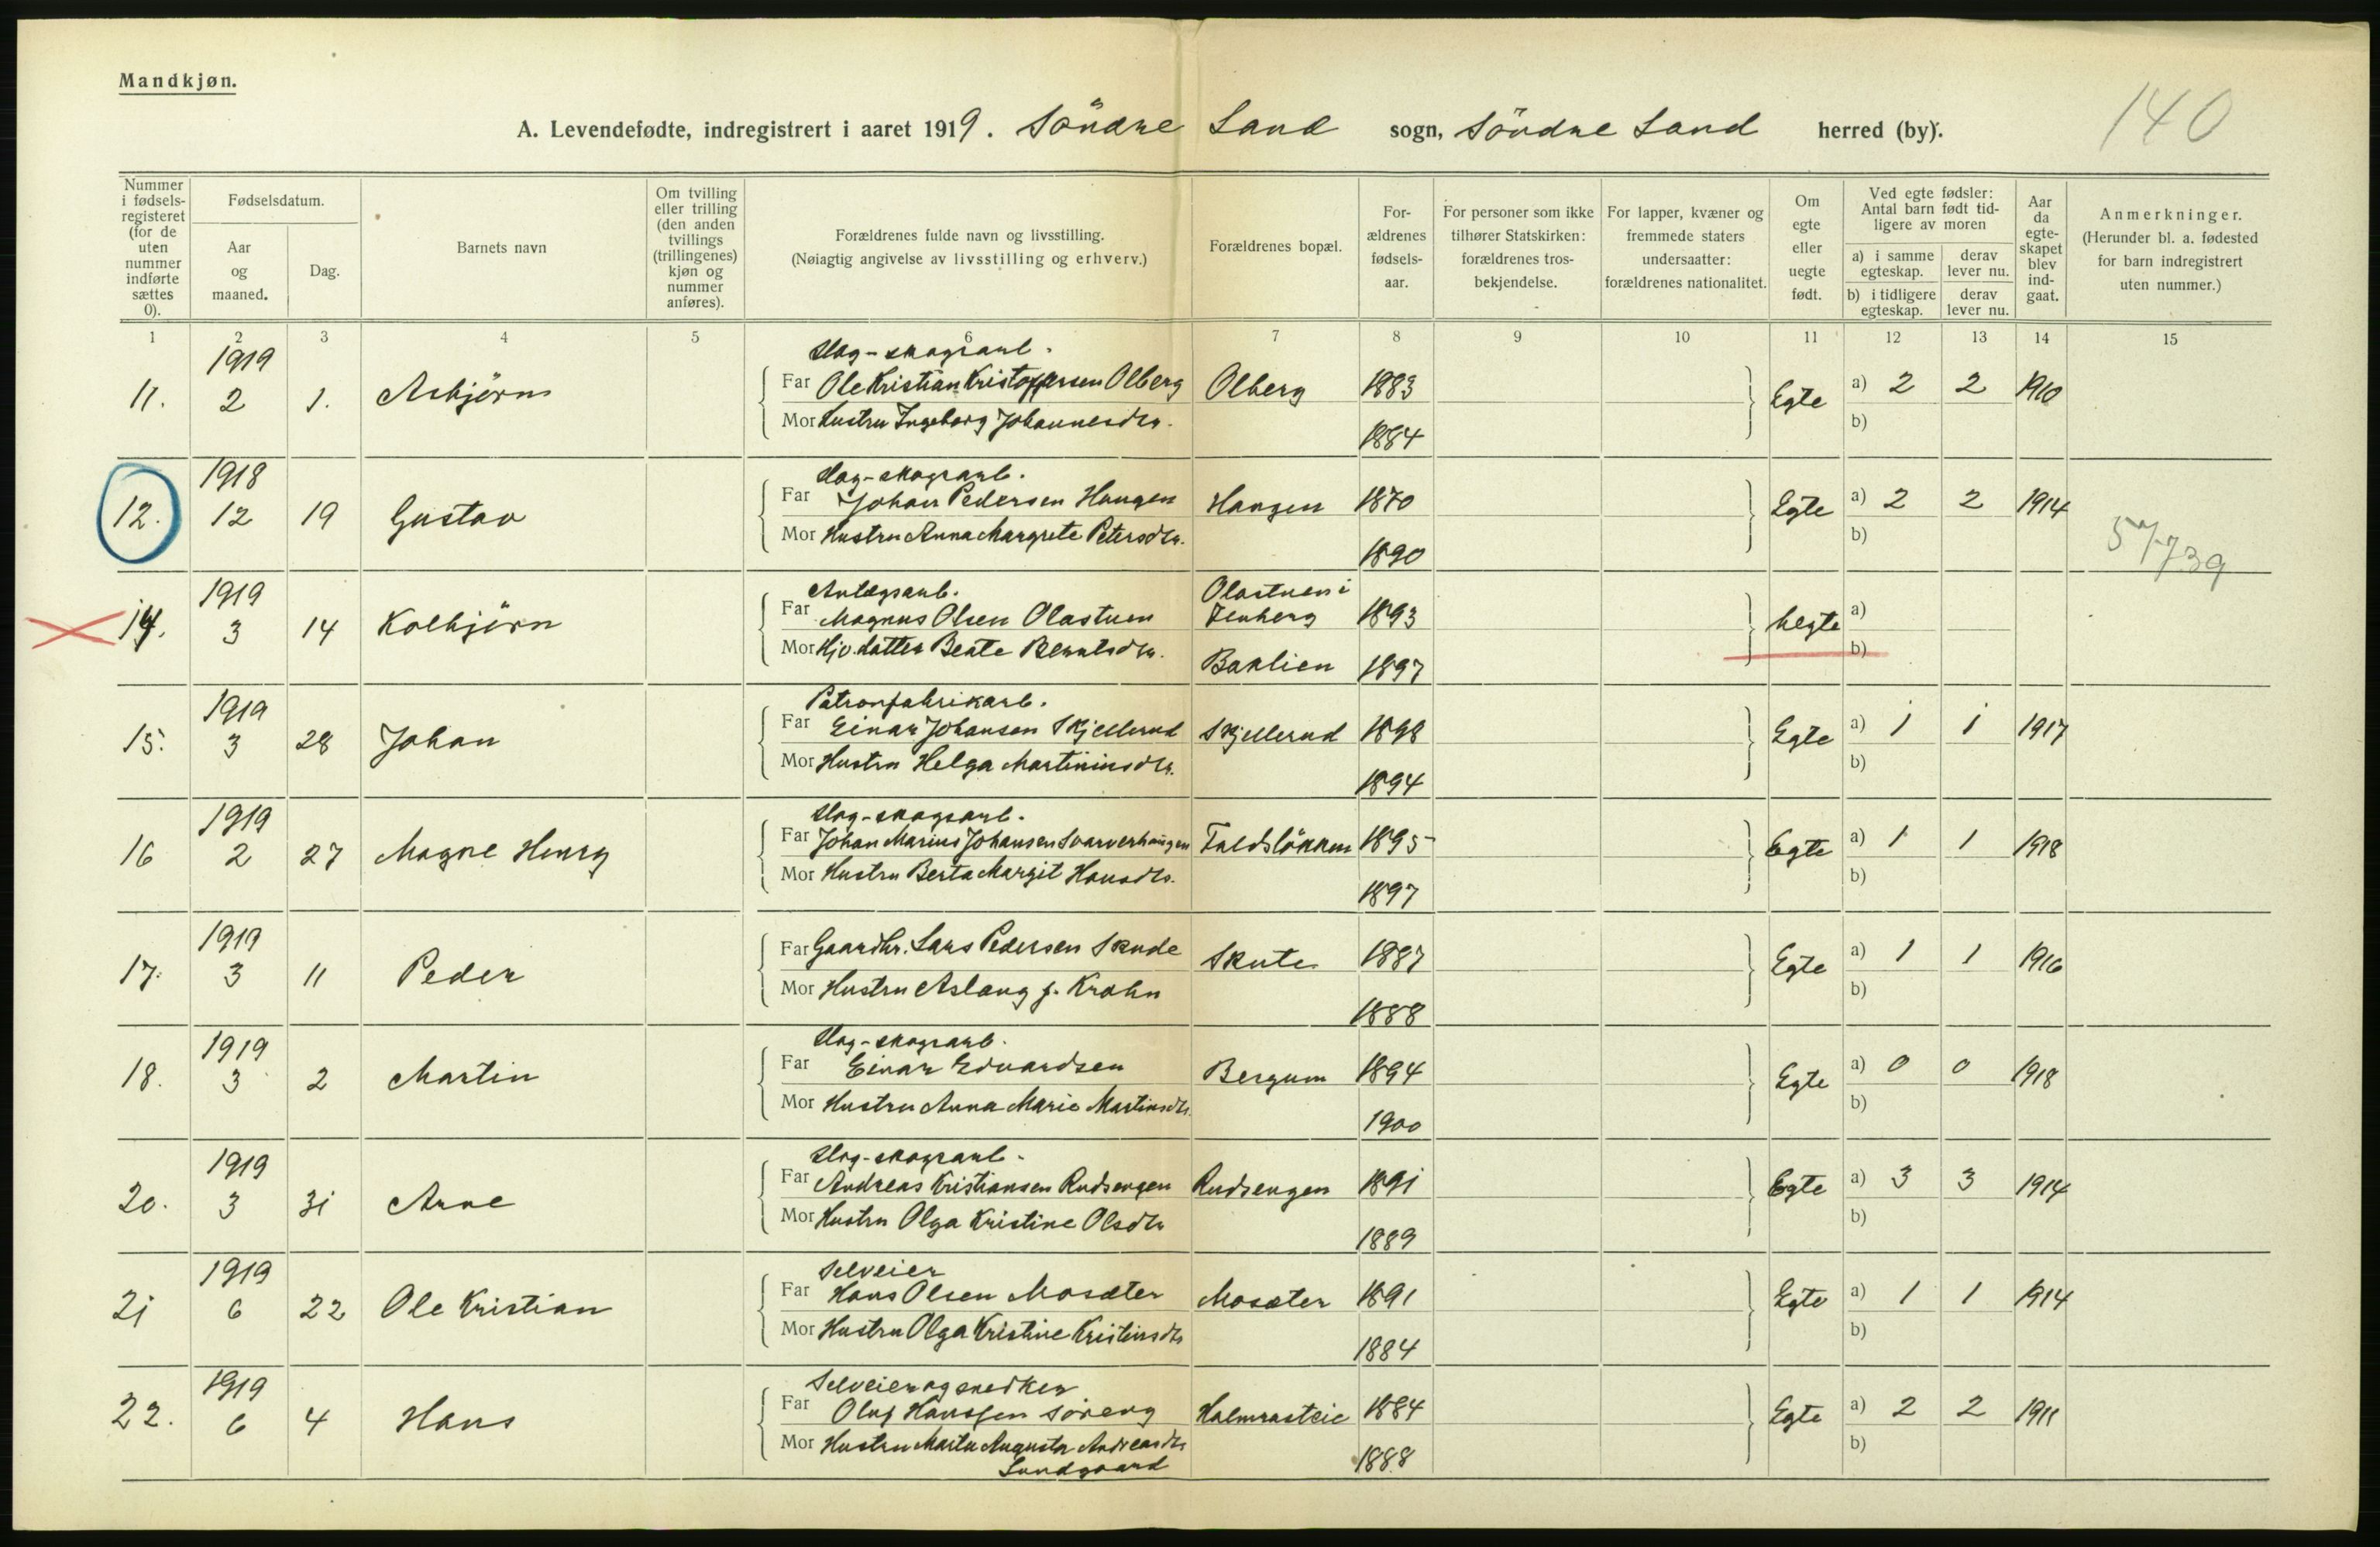 Mandkjøn.
140
A. Levendefødte, indregistrert i aaret 1919. Söndre Land sogn, Söndre Land herred (by).
Nummer i fødsels-registeret (for de uten nummer indførte sættes 0).
Fødselsdatum.
Aar og maaned.
Dag.
Barnets navn
Om tvilling eller trilling (den anden tvillings (trillingenes) kjøn og nummer anføres).
Forældrenes fulde navn og livsstilling.
(Nøiagtig angivelse av livsstilling og erhverv.)
Forældrenes bopæl.
For-ældrenes fødsels-aar.
For personer som ikke tilhører Statskirken: forældrenes tros-bekjendelse.
For lapper, kvæner og fremmede staters undersaatter: forældrenes nationalitet.
Om egte eller uegte født.
Ved egte fødsler: Antal barn født tid-ligere av moren
a) i samme egteskap.
derav lever nu.
b) i tidligere egteskap.
derav lever nu.
Aar da egte-skapet blev ind-gaat.
Anmerkninger.
(Herunder bl. a. fødested for barn indregistrert uten nummer.)
1 2 3 4 5 6 7 8 9 10 11 12 13 14 15
1919 Dag-skogsarb.
11. 2 1. Asbjörn Far Ole Kristian Kristoffersen Olberg Olberg 1883 Egte a) 2 2 1910
Mor Hustru Ingeborg Johannesdtr. 1884 b)
1918 Dag-skogsarb.
12. 12 19 Gustav Far Johan Pedersen Haugen Haugen 1870 Egte a) 2 2 1914
Mor Hustru Anna Margrete Petersdtr. 1890 b)
57739
1919 Anlægsarb. Olastuen i
14. 3 14 Kolbjörn Far Magnus Olsen Olastuen 1893 Uegte a)
Mor Hjv. datter Beate Berntsdtr. Baklien 1897 b)
1919 Patronfabrikarb.
15. 3 28 Johan Far Einar Johansen Skjellerud Skjellerud 1898 Egte a) 1 1 1917
Mor Hustru Helga Martiniusdtr. 1894 b)
1919 Dag-skogsarb.
16 2 27 Magne Henry Far Johan Marius Johansen Svarverhaugen 1895 Egte a) 1 1 1918
Mor Hustru Berta Margit Hansdtr. 1897 b)
1919
17. 3 11 Peder Far Gaardbr. Lars Pedersen Skude Skute 1887 Egte a) 1 1 1916
Mor Hustru Aslaug f. Krohn 1888 b)
1919 Dag-skogsarb.
18. 3 2 Martin Far Einar Edvardsen Bergum 1894 Egte a) 0 0 1918
Mor Hustru Anna Marie Martinsdtr. 1900 b)
1919 Dag-skogsarb.
20. 3 31 Arne Far Andreas Kristiansen Rudsengen Rudsengen 1891 Egte a) 3 3 1914
Mor Hustru Olga Kristine Olsdtr 1889 b)
1919 Selveier
21 6 22 Ole Kristian Far Hans Olsen Mosæter Mosæter 1891 Egte a) 1 1 1914
Mor Hustru Olga Kristine Kristinsdtr 1884 b)
1919 Selveier og snedker
22. 6 4 Hans Far Oluf Hanssen Söreng Halmrasteie 1884 Egte a) 2 2 1911
Mor Hustru Marta Augusta Andreasdtr 1888 b)
Lundgaard